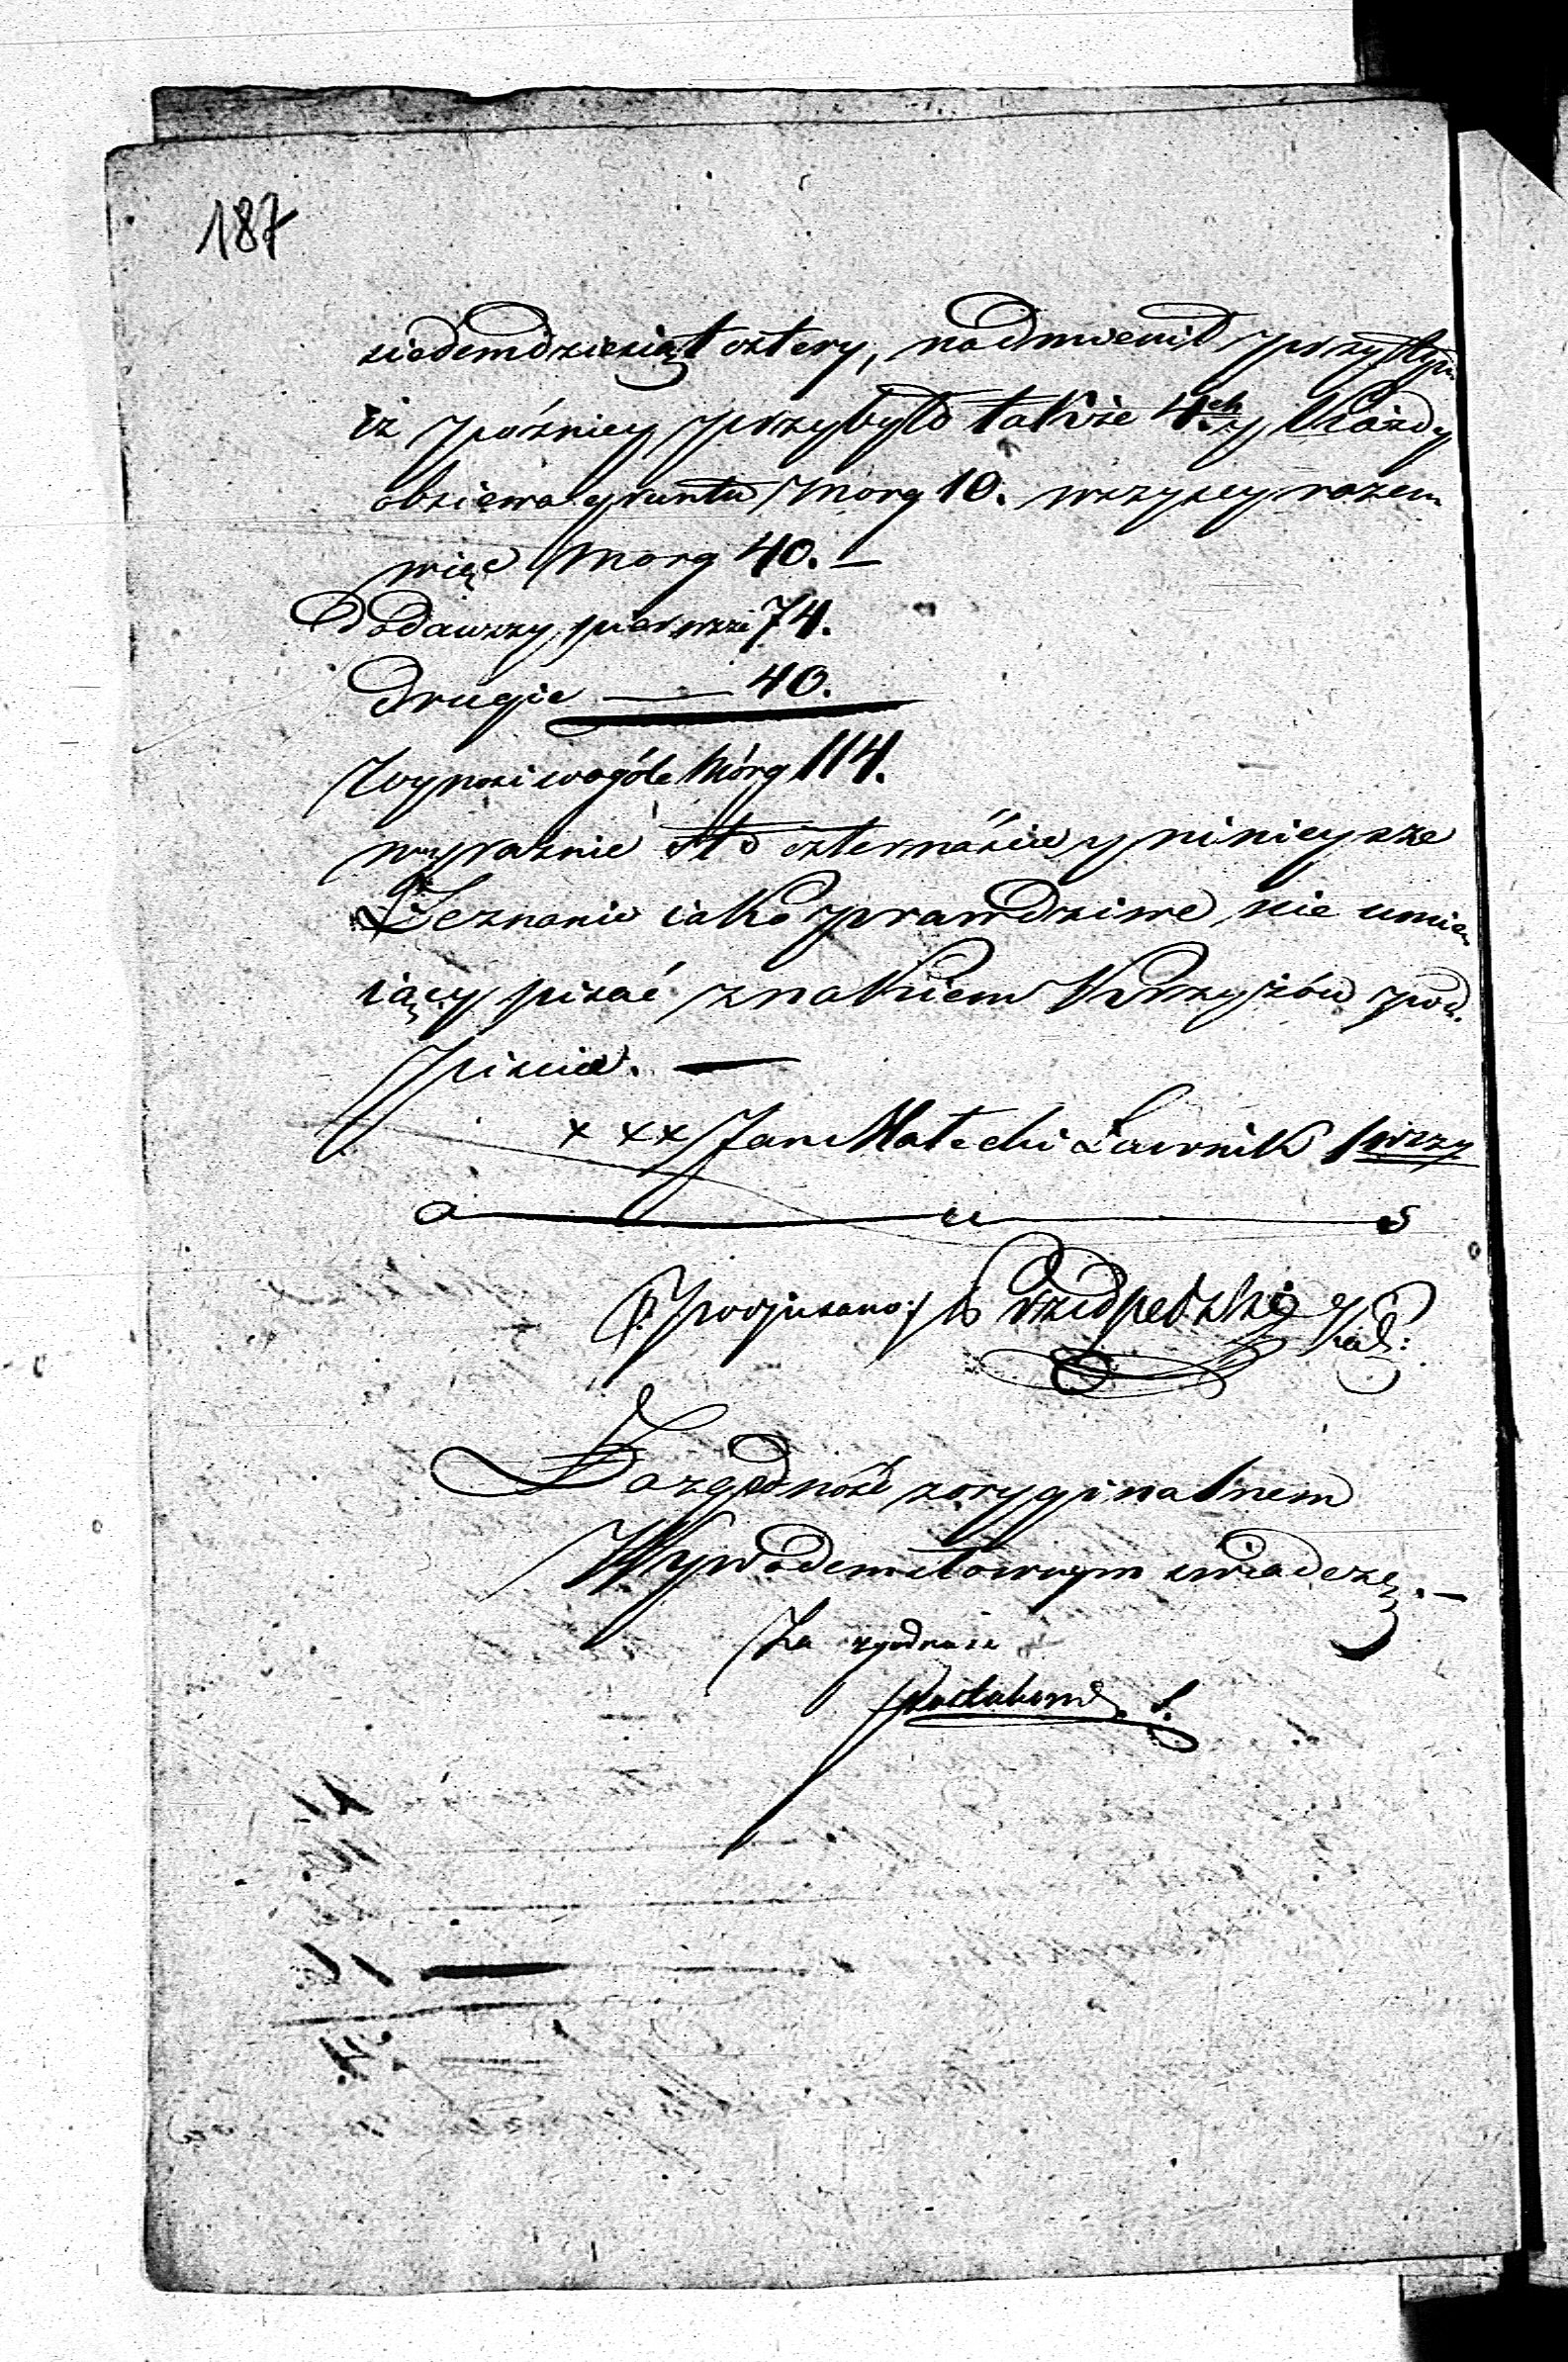 187
siedemdziesiąt cztery, nadmienił przytym
iż pożniey przybyło także 4.ch y Każdy
obsiewa gruntu Morg 10. wszyscy razem
więc Morg 40. —
Dodawszy pierwsze 74.
drugie — 40.
Wynosi wogóle Mórg 114.
wyraznie Sto czternaście y ninieysze
Zeznanie iako prawdziwe nie umie-
iący pisać znakiem Krzyżów pod-
pisuie. —
x x x Jan Małecki Ławnik 1wszy
a — u — s
podpisano:
Za zgodność z oryginalnem
Wywodem słownym swiadczę. —
Za zgodnosc